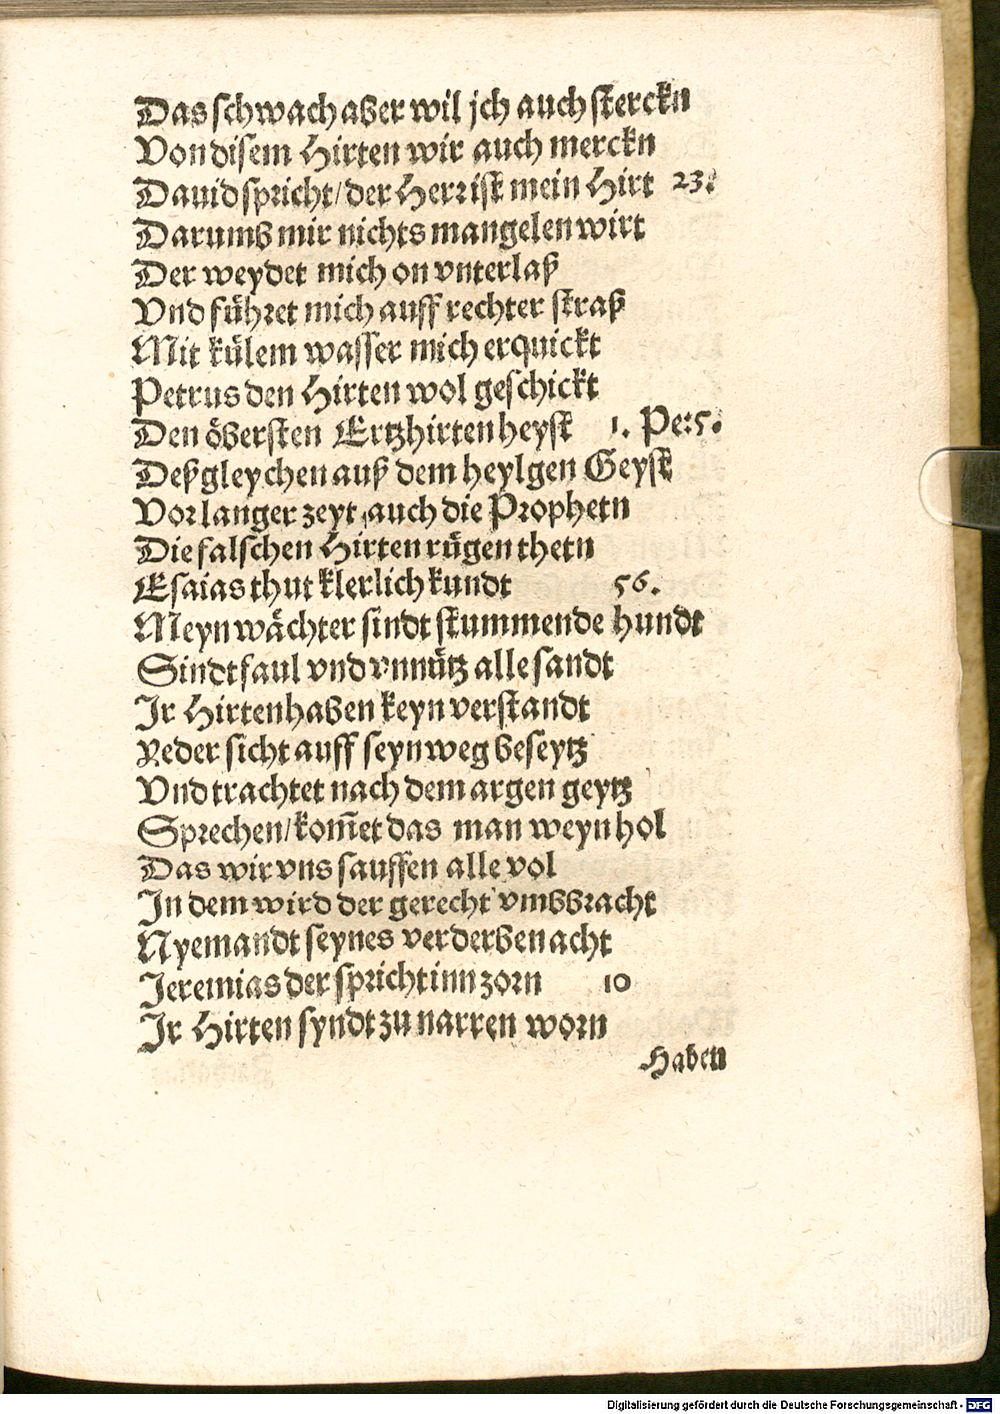 Das schwach aber wil jch auch sterckn
Von disem Hirten wir auch merckn
Dauid spricht/ der Herr ist mein Hirt 23.
Darumb mir nichts mangelen wirt
Der weydet mich on vnterlaß
Vnd führet mich auff rechter straß
Mit külem wasser mich erquickt
Petrus den Hirten wol geschickt
Den öbersten Ertzhirten heyst 1. Pe: 5.
Deßgleychen auß dem heylgen Geyst
Vor langer zeyt auch die Prophetn
Die falschen Hirten rügen thetn
Esaias thut klerlich kundt 56.
Meyn wächter sindt stummende hundt
Sindt faul vnd vnnütz alle sandt
Ir Hirten haben keyn verstandt
Yeder sicht auff seyn weg beseytz
Vnd trachtet nach dem argen geytz
Sprechen/ kom̄et das man weyn hol
Das wir vns sauffen alle vol
In dem wird der gerecht vmbbracht
Nyemandt seynes verderben acht
Jeremias der spricht inn zorn 10
Ir Hirten syndt zu narren worn
Haben
Digitalisierung gefördert durch die Deutsche Forschungsgemeinschaft - DFG